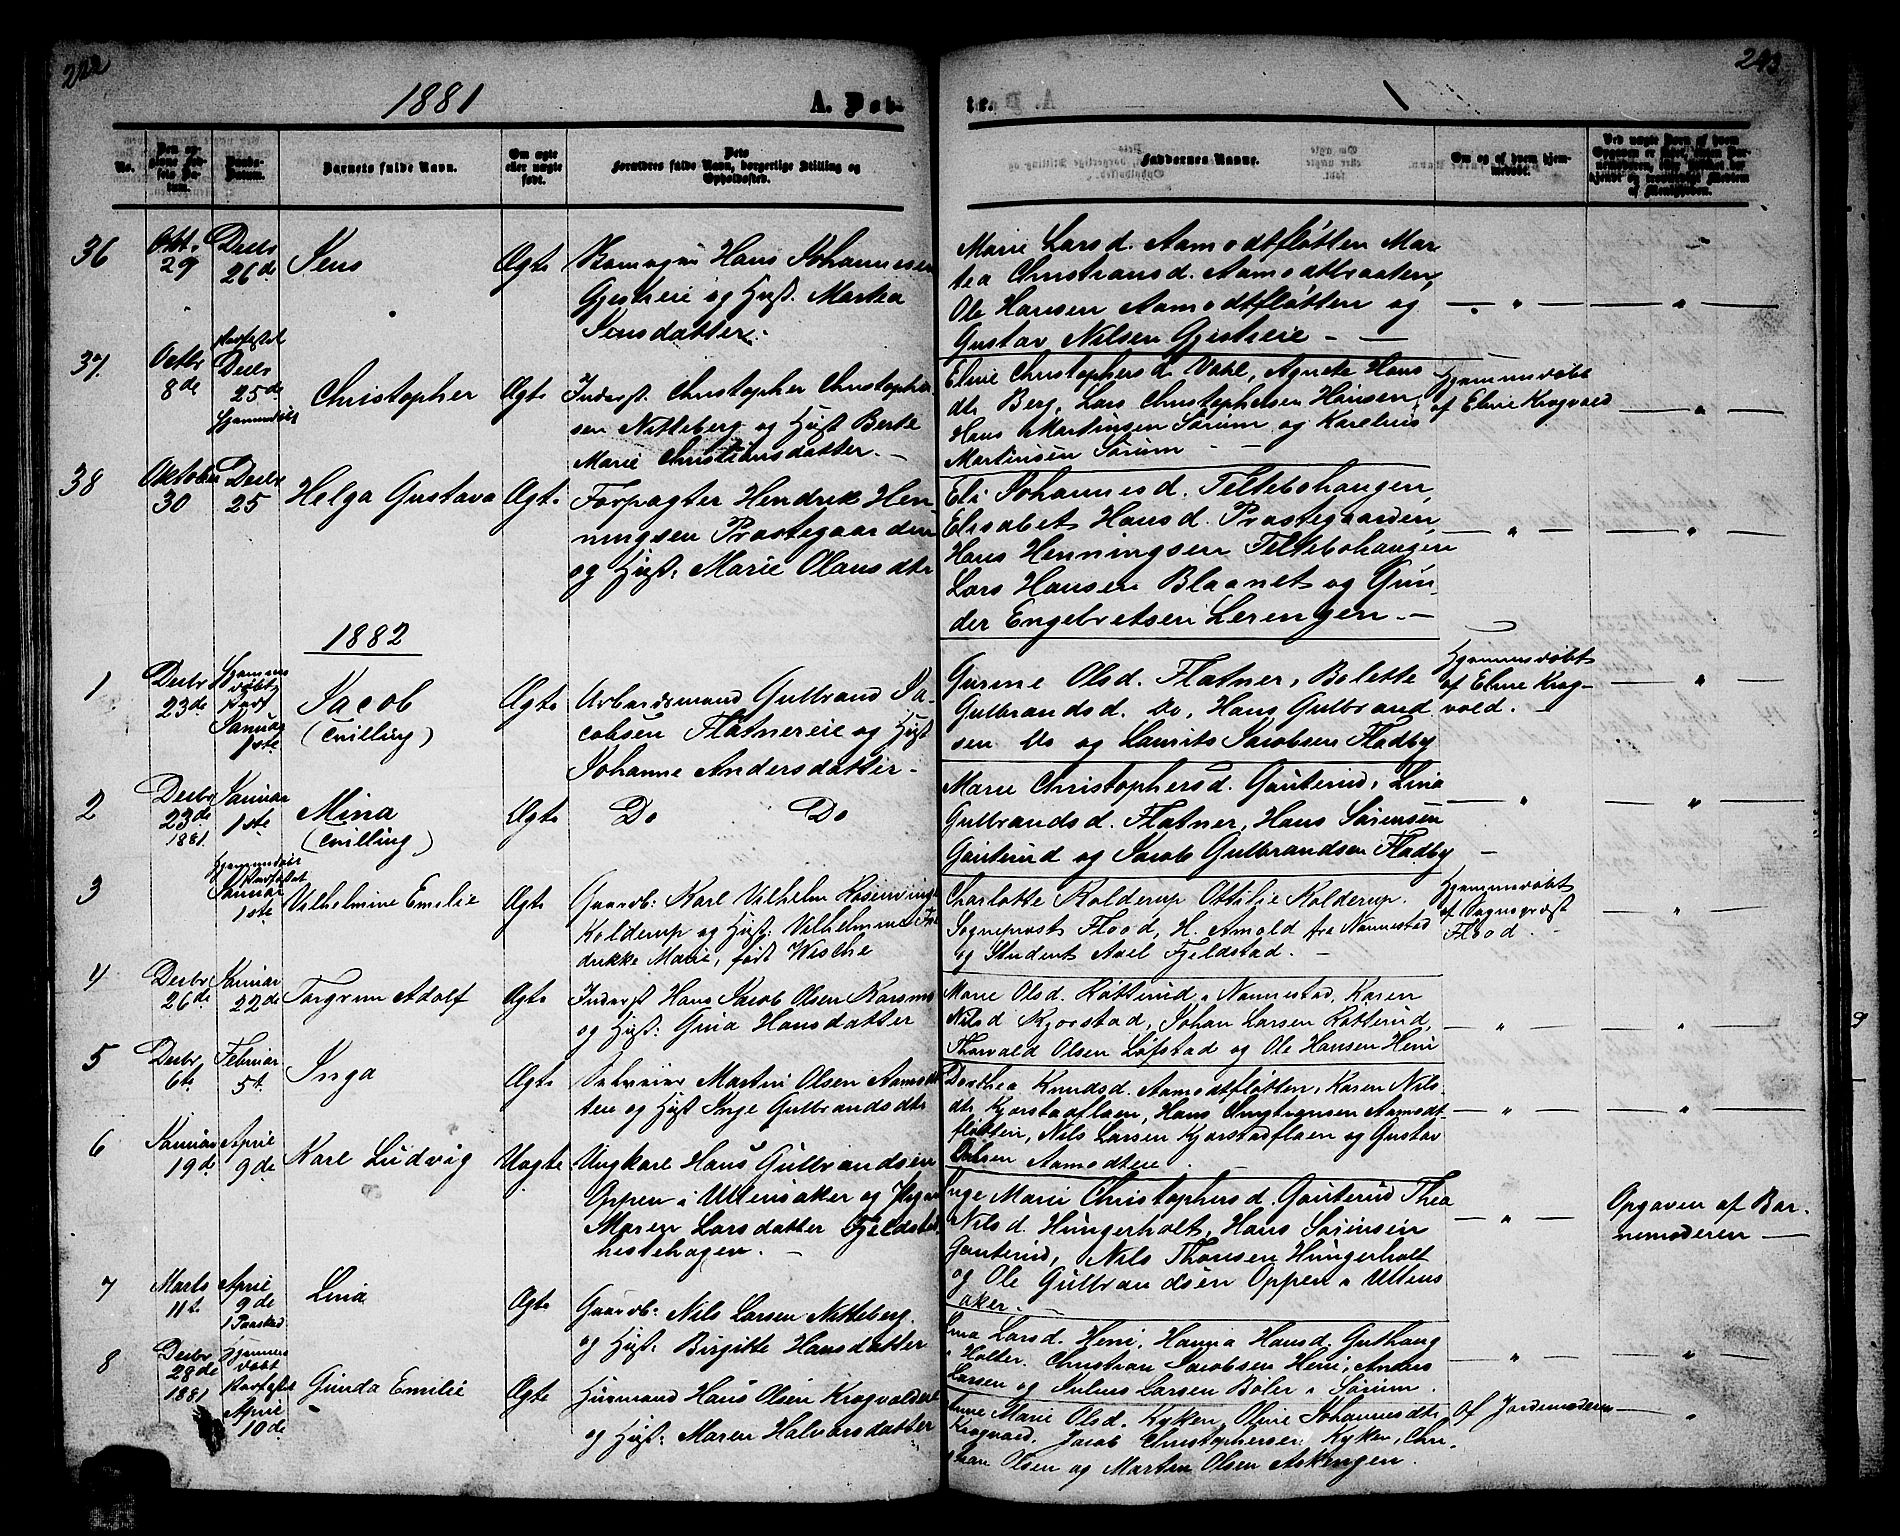 242
243
1881
A. Døb-
te.
No.
Barnets fulde Navn.
Om ægte
eller uægte
født.
Dets
Forældres fulde Navn, borgerlige Stilling og
Opholdssted.
Faddernes Navne.
Om og af hvem hjem-
medøbt.
36
Okt.
29
Decbr
26de
Jens
Ægte
Hans Johannesen
Gjestreie og Hust. Marthea
Jensdatter.
Marie Larsd. Aamodtfløtten Mar
tea Christiansd. Aamodtbraaten,
Ole Hansen Aamodtfløtten og
Gustav Nilsen Gjestreie
37.
Octbr
8de
stadfæstet
Decbr
25de
Hjemmedøbt
Christopher
Ægte
Inderst. Christopher Christopher
sen Nitteberg og Hust Berte
Marie Christiansdatter.
Eline Christophersd. Vahl, Agnete Hans
dtr Berg, Lars Christophersen Hansen,
Hans Martinsen Sørum og Karelius
Martinsen Sørum
Hjemmedøbt
af Eline Krogvold
38
Oktober
30
Decbr
25
Helga Gustava
Ægte
Forpagter Hendrik Hen
ningsen Præstegaarden
og Hust. Marie Olausdtr
Eli Johannesd. Teltebohaugen,
Elisabet Hansd. Præstegaarden,
Hans Henningsen Teltebohaugen
Lars Hansen Blaanet og Gun
der Engebretsen Lerengen.
1882
1
Decbr
23de
Hjemme
døbt
stadf
Januar
1ste
Jacob
(Tvilling)
Ægte
Arbeidsmand Gulbrand Ja-
cobsen Flatnereie og Hust
Johanne Andersdatter
Gurine Olsd. Flatner, Bolette
Gulbrandsd. Do, Hans Gulbrand
sen Do og Laurits Jacobsen Fladby
Hjemmedøbt
af Eline Krog-
vold.
2
Decbr
23de
1881.
Januar
1ste
Mina
(Tvilling)
Ægte
Do Do
Marie Christophersd. Gauterud, Lina
Gulbrandsd. Flatner, Hans Sørensen
Gauterud og Jacob Gulbrandsen Fladby
3
Hjemmedøbt
stadfæstet
Januar
1ste
Vilhelmine Emilie
Ægte
Gaardb: Karl Vilhelm Rosenvinge
Kolderup og Hust. Vilhelmine Fre
drikke Marie, født Wesche
Charlotte Kolderup Ottilje Kolderup.
Sogneprest Flood, H. Arnold fra Nannestad
og Student Axel Fjeldstad.
Hjemmedøbt
af Sogneprest
Flood.
4
Decbr
26de
Januar
22de
Torgrim Adolf
Ægte
Inderst Hans Jacob Olsen
og Hust. Gina Hansdatter
Marie Olsd. Røtterud, Nannestad, Karen
Nilsd Kjorstad, Johan Larsen Røtterud,
Thorvald Olsen Løfstad og Ole Hansen Heni
5
Decbr
6te
Februar
5te
Inga
Ægte
Selveier Martin Olsen Aamodt
teie og Hust Inge Gulbrandsdtr
Dorthea Knudsd. Aamodtfløtten, Karen Nils
dtr Kjorstadflaen, Hans Aamodt
fløtten, Nils Larsen Kjorstadflaen og Gustav
Olsen Aamodteie
6
Januar
19de
April
9de
Karl Ludvig
Uægte
Ungkarl Hans Gulbrandsen
Oppen i Ullensaker og Pigen
Maren Larsdatter Fjeldstad
hestehagen.
Inge Marie Christophersd. Gauterud Thea
Nilsd. Hungerholt, Hans Sørensen
Gauterud, Nils Thoresen Hungerholt
og Ole Gulbrandsen Oppen i Ullens
aker.
Opgaven af Bar-
nemoderen
7
Marts
11te
April
9de
1 Paaskedag
Lina
Ægte
Gaardb. Nils Larsen Nitteberg.
og Hust. Birgitte Hansdatter
Lina Larsd. Heni, Hanna Hansd. Guthaug
i Holter. Christian Jacobsen Heni, Anders
Larsen og Julius Larsen Bøler i Sørum.
8
Decbr
28de
1881
Hjemme
døbt
stadfæstet
April
10de
Gunda Emilie
Ægte
Husmand Hans Olsen Krogvoldeie
og Hust. Maren Halvorsdatter
Anne Marie Olsd. Kykken, Oline Johannesdtr
Krogvold. Jacob Christophersen Kykken, Chri-
stian Olsen og Martin Olsen Askengen.
Af Jordemoderen